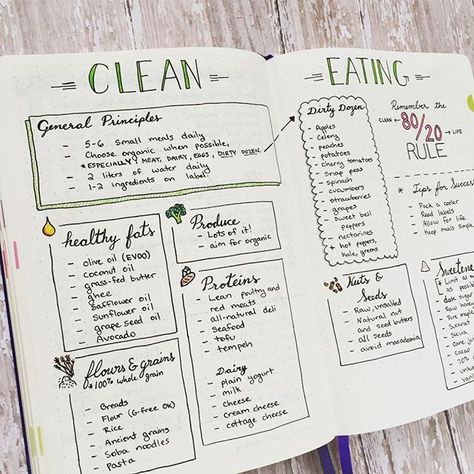 CLEAN
General Principles
- 5-6 Small meals daily
- Choose organic when possible,
*ESPECIALLY MEAT, DAIRY, EGGS, DIRTY DOZEN
- 2 liters of water daily
- 1-2 ingredients on label
healthy fats
- olive oil (EVOO)
- coconut oil
- grass-fed butter
- ghee
- Safflower oil
- Sunflower oil
- grape seed oil
- Avocado
flours & grains
*100% whole grain
- Breads
- Flour (G-free OK)
- Rice
- Ancient grains
- Soba noodles
- pasta
Produce
- Lots of it!
- aim for organic
Proteins
- Lean poultry and
red meats
- all-natural deli
- Seafood
- tofu
- tempeh
Dairy
- plain yogurt
- milk
- cheese
- cream cheese
- cottage cheese
EATING
Dirty Dozen
- Apples
- Celery
- peaches
- potatoes
- cherry tomatoes
- Snap peas
- Spinach
- cucumbers
- strawberries
- grapes
- sweet bell
peppers
- nectarines
- hot peppers,
Kale, greens
Remember the
CLEAN 80/20 LIFE
RULE
* Tips for Success
- Pack a cooler
- Read labels
- Allow for life
- Keep meals simple
Nuts &
Seeds
- Raw, unsalted
- Natural nut
and seed butters
- all Seeds
- avoid macadamia
- Limit as
as possible
- dark
- Raw